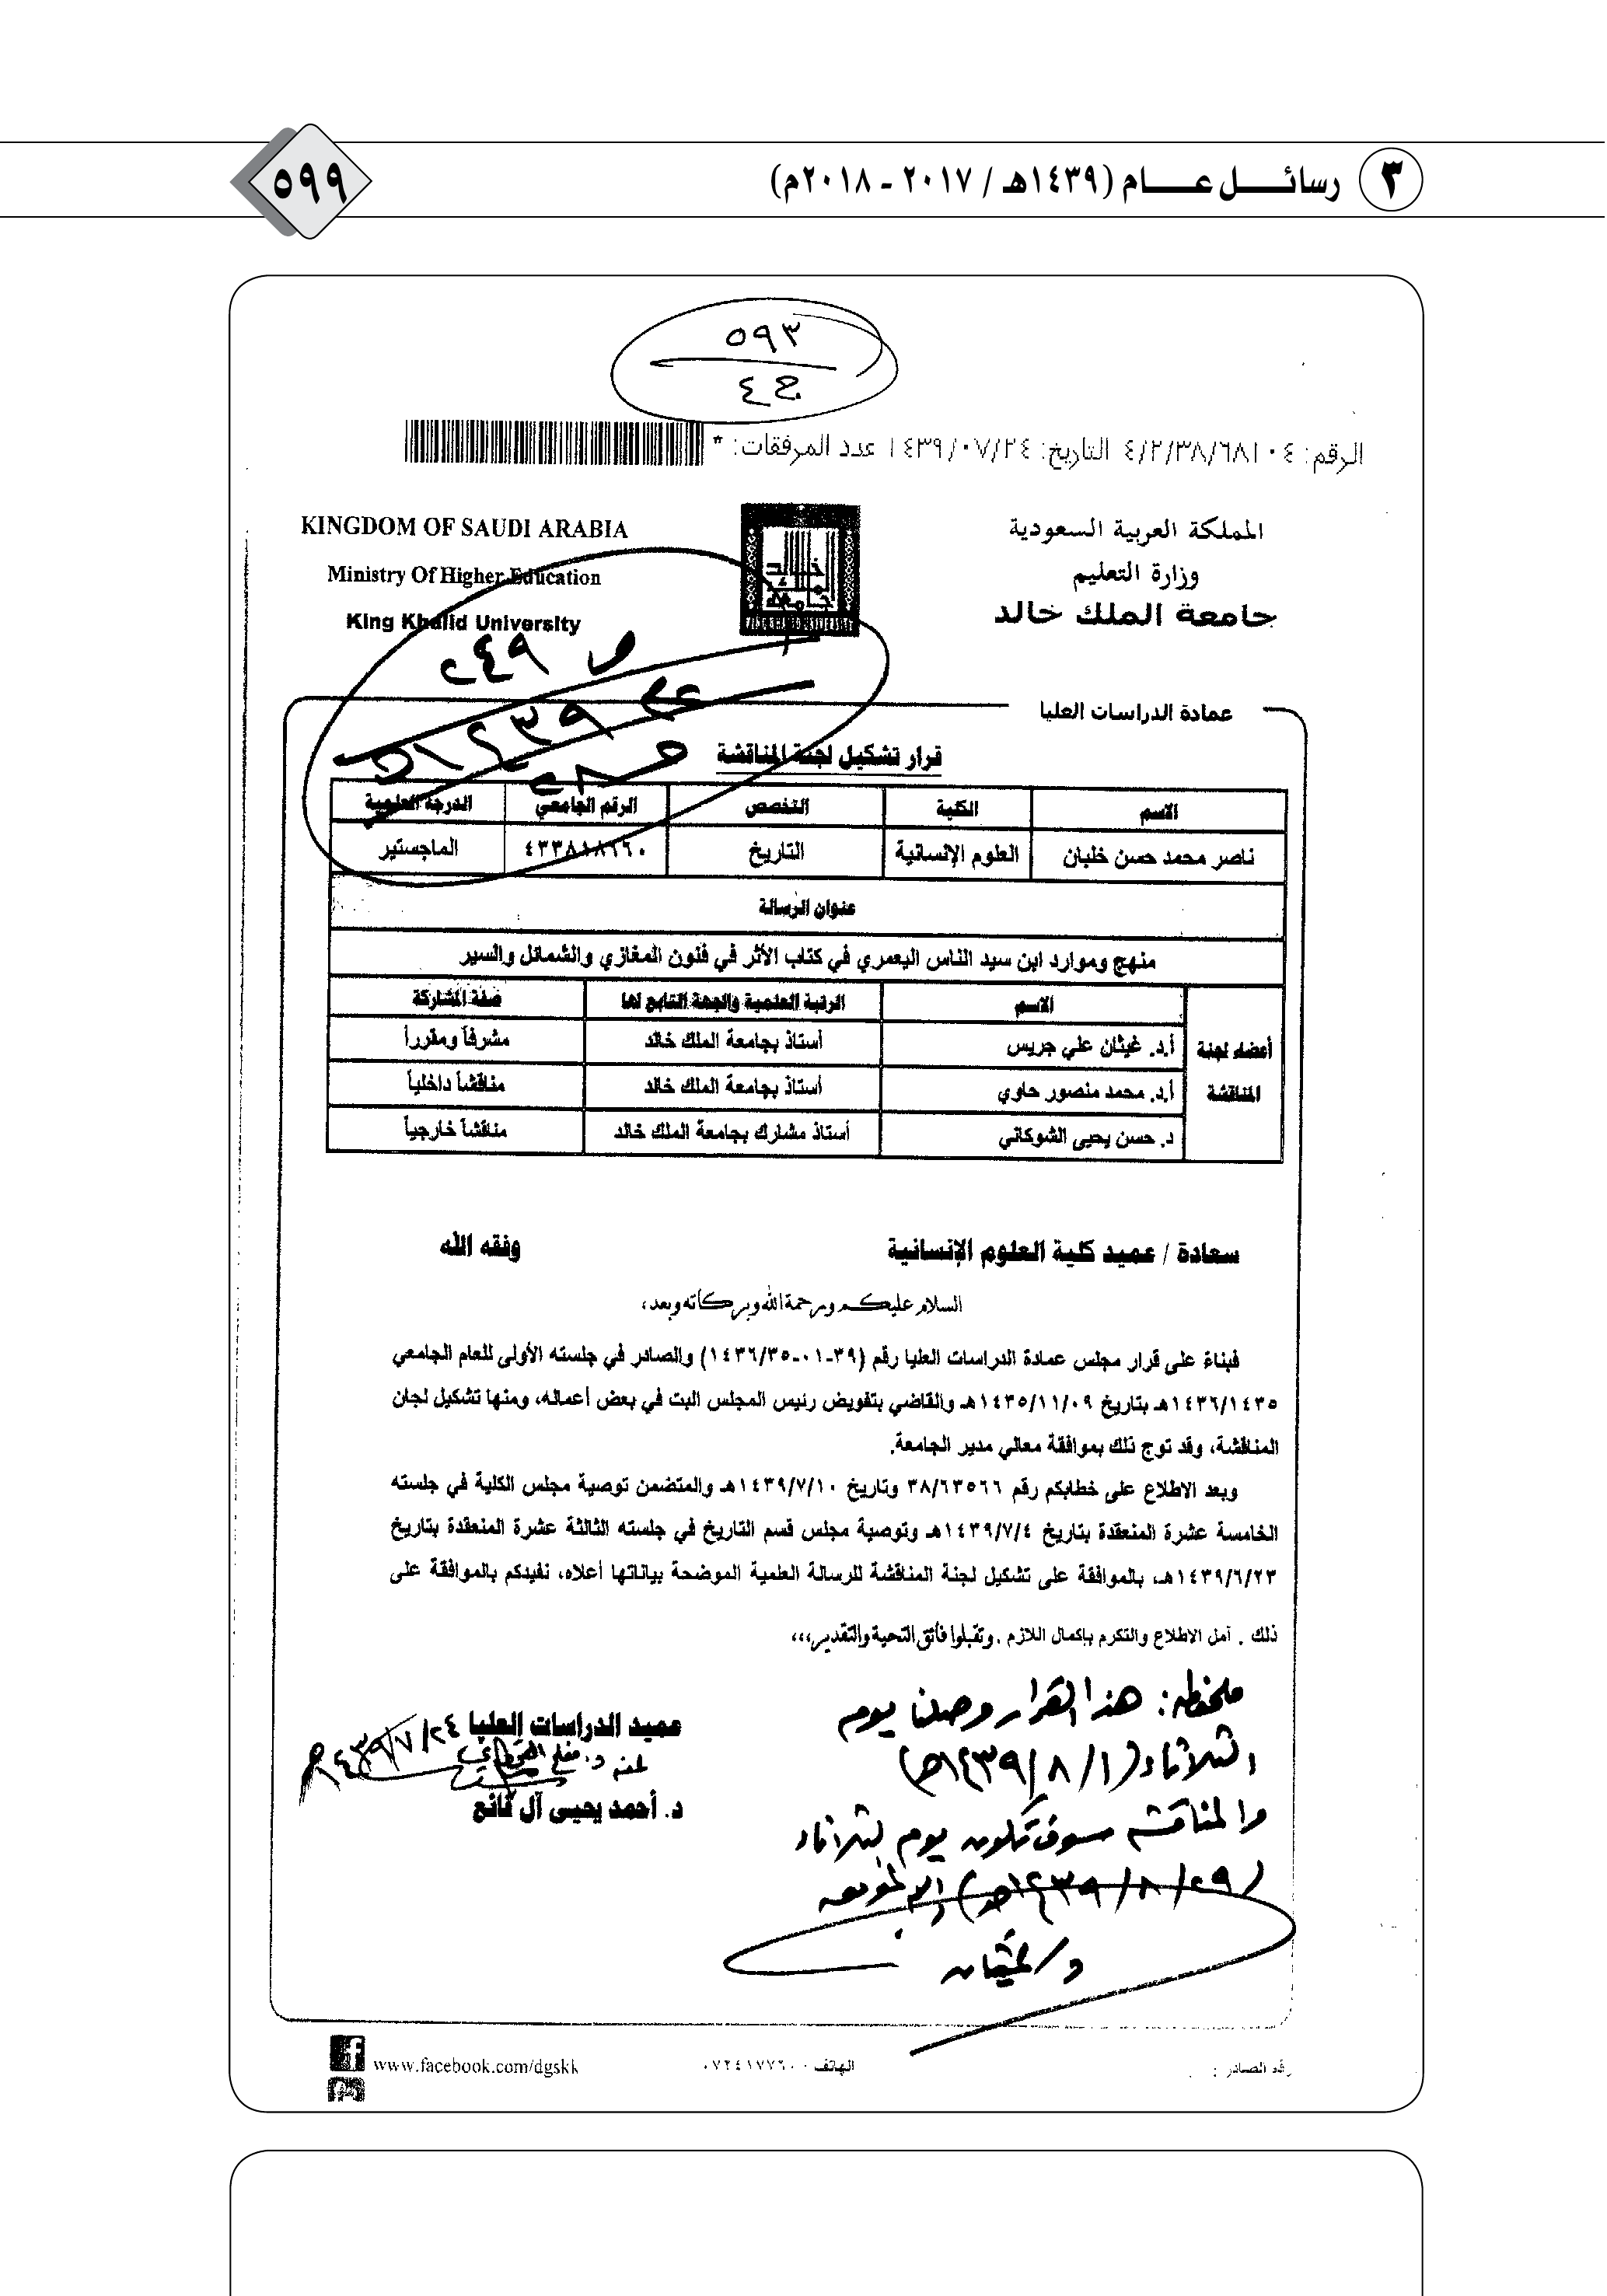 ٣ رسائل عام (١٤٣٩هـ / ٢٠١٧ - ٢٠١٨م)
٥٩٩
٥٩٣
ج٤
الرقم: ٤/٢/٣٨/٦٨١٠٤ التاريخ: ١٤٣٩/٠٧/٢٤ عدد المرفقات: *
المملكة العربية السعودية
وزارة التعليم
جامعة الملك خالد
KINGDOM OF SAUDI ARABIA
Ministry Of Higher Education
King Khalid University
عمادة الدراسات العليا
قرار تشكيل لجنة المناقشة
الاسم الكلية التخصص الرقم الجامعي الدرجة العلمية
ناصر محمد حسن خلبان العلوم الإنسانية التاريخ ٤٣٣٨١٨٦٦٠ الماجستير
عنوان الرسالة
منهج وموارد ابن سيد الناس اليعمري في كتاب الأثر في فنون المغازي والشمائل والسير
أعضاء لجنة المناقشة
الاسم الرتبة العلمية والجهة التابع لها صفة المشاركة
أ.د. غيثان علي جريس أستاذ بجامعة الملك خالد مشرفاً ومقرراً
أ.د. محمد منصور حاوي أستاذ بجامعة الملك خالد مناقشاً داخلياً
د. حسن يحيى الشوكاني أستاذ مشارك بجامعة الملك خالد مناقشاً خارجياً
سعادة / عميد كلية العلوم الإنسانية وفقه الله
السلام عليكم ورحمة الله وبركاته وبعد،
فبناءً على قرار مجلس عمادة الدراسات العليا رقم (٣٩-٠١-١٤٣٦/٣٥) والصادر في جلسته الأولى للعام الجامعي
١٤٣٦/١٤٣٥هـ بتاريخ ١٤٣٥/١١/٠٩هـ والقاضي بتفويض رئيس المجلس البت في بعض أعماله، ومنها تشكيل لجان
المناقشة، وقد توج ذلك بموافقة معالي مدير الجامعة.
وبعد الاطلاع على خطابكم رقم ٣٨/٦٣٥٦٦ وتاريخ ١٤٣٩/٧/١٠هـ والمتضمن توصية مجلس الكلية في جلسته
الخامسة عشرة المنعقدة بتاريخ ١٤٣٩/٧/٤هـ وتوصية مجلس قسم التاريخ في جلسته الثالثة عشرة المنعقدة بتاريخ
١٤٣٩/٦/٢٣هـ، بالموافقة على تشكيل لجنة المناقشة للرسالة العلمية الموضحة بياناتها أعلاه، نفيدكم بالموافقة على
ذلك . آمل الاطلاع والتكرم بإكمال اللازم . وتقبلوا فائق التحية والتقدير،،،
عميد الدراسات العليا
١٤٣٩/٧/٢٤
د. أحمد يحيى آل فائع
ملحظة: هذا القرار وصلنا يوم
الثلاثاء (١/٨/١٤٣٩هـ)
والمناقشة سوف تكون يوم الثلاثاء
(٢٩/٨/١٤٣٩هـ)
د/غيثان
رقم الصادر :
الهاتف ٠٧٢٤١٧٧٦٠٠
www.facebook.com/dgskk